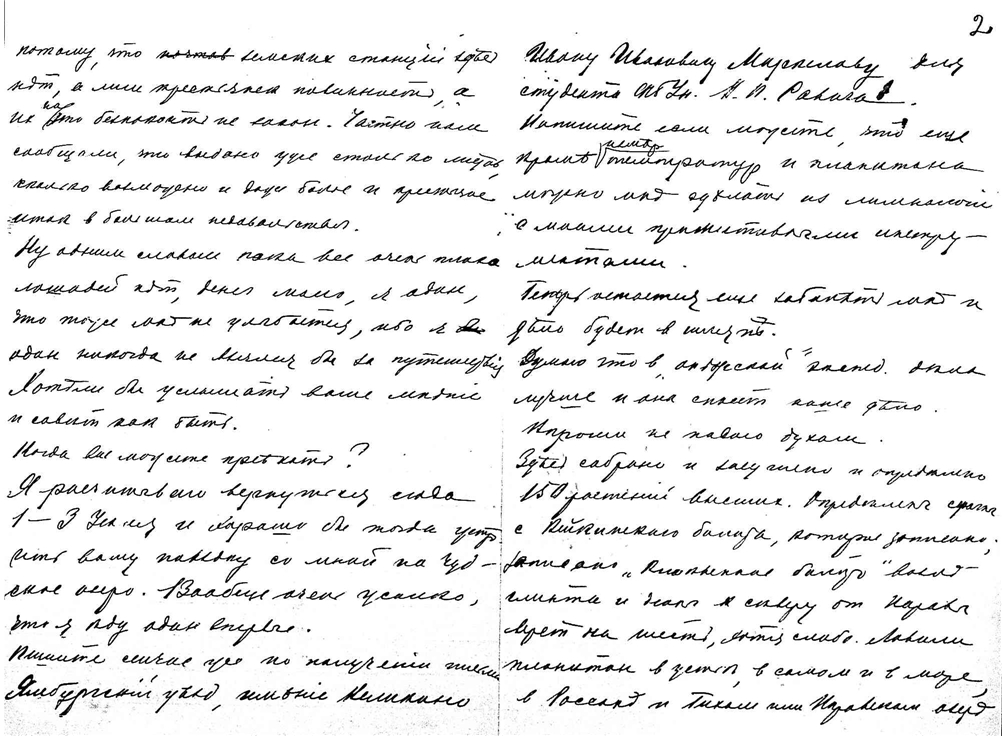 2
потому, что земских станций здѣс
нѣт, а лиш крестьянск повинность, а
их на это безпокоить не закон. Частно нам
сообщали, что выбано уже столько
сколько возможно и даже более и крестьяне
итак в большом недовольстве.
Ну одним словом пока все очень плохо
лошадей нѣт, денег мало, я один,
что тоже мнѣ не улыбается, ибо я
один никогда не вышел бы за путешествіе
Хотѣл бы услышать ваше мнѣніе
и совѣт как быть.
Когда вы можете пріѣхать?
Я расчитываю вернуться сюда
1–3 Іюля и хорошо бы тогда устро
ить вашу поѣздку со мной на Чуд–
ское озеро. Вообще очень ужасно,
что я ѣду один впервые.
Пишите сейчас уже по полученіи письма
Ямбургскій уѣзд, имѣніе Келикино
Ивану Ивановичу Мартелову для
студента СПб Ун.
Напишите если можете, что еще
кромѣ температур и планктона
можно мнѣ сдѣлать из лимнологіи
с моими примитивными инстру–
ментами.
Теперь остается еще забыть мнѣ и
дѣло будет в шляпѣ.
Думаю что в „онборской“ экспед. дѣла
лучше и она спасет наше дѣло.
Впрочем не падаю духом.
Здѣсь собрано и засушено и опредѣлено
150 растеній высших. Опредѣлял сфагны
с болота, которое записано,
записано „ болото“
и к сѣверу от Наровы
верст на шесть, хотя слабо. Ловили
планктон в устьи, в самом и в море,
в Россонѣ и Тихом или Наровском озерѣ